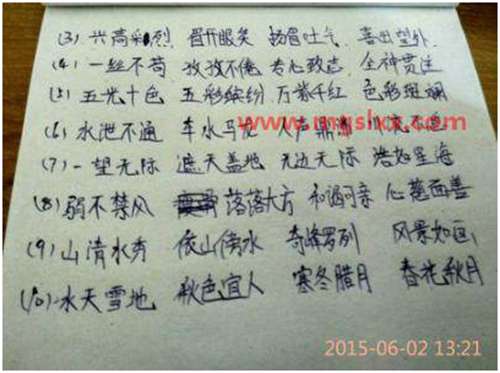 (3) 兴高彩烈 眉开眼笑 扬眉吐气 喜出望外
(4) 一丝不苟 孜孜不倦 专心致志 全神贯注
(5) 五光十色 五彩缤纷 万紫千红 色彩斑斓
(6) 水泄不通 车水马龙 人声鼎沸
www.mgslxx.com
(7) 一望无际 遮天盖地 无边无际 浩如星海
(8) 弱不禁风 落落大方 和谒可亲 心慈面善
(9) 山清水秀 依山傍水 奇峰罗列 风景如画
(10) 水天雪地 秋色宜人 寒冬腊月 春花秋月
2015-06-02 13:21